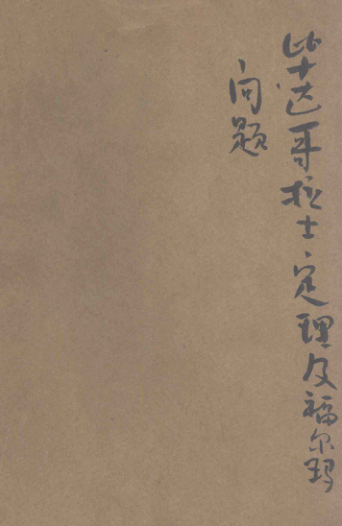 毕达哥拉士定理及福尔玛
问题